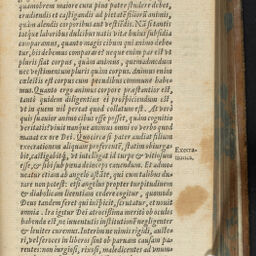 quamobrem maiore cura pius pater studere debet,
erudiendi et castigandi ad pietatē filiorū animis,
quàm alendis corporibus aut vestiēdis. Nā si tan-
is laboribus dulcibus natis vitæ huius subsidia
comparamus, quanto magis cibum qui animo debe-
tur, his debemus comparare? neque enim par est vt
pluris fiat corpus, quàm animus, quemadmodum
nec vestimentum pluris quàm corpus. Animus enim
cælestis est corpus cum pecudibus commune habe-
mus. Quanto ergo animus corpore præstantior est,
tantò quidem diligentius ei prospiciendum est,
vt in quem nil pereat quod collatum est. At verò
quis suauior animo cibus esse potest, quàm cognitio
veritatis? viuit nanque animus omni eo verbo quod
manat ex ore Dei. Quocirca si pater audiat filium
execrationem aliquam proferentē, statim obiurga-
bit, castigabitq́, vt intelligat id turpe & vitiosum
esse, & sibi sub pœna deinceps cauendum. Et admo-
neatur etiam ab angelo astāte, qui eum talibus du-
rare non potest: etsi angelus propter turpitudinem
& diabolicam dementiam cedere cogitur, quomodo
Deus tandem feret qui inspicit, scrutatur, et nouit
omnia. Ira igitur Dei atrocissima meritò ob oculos
habenda est, ne inuentutis institutionē negligenter
& leuiter curemus. Interim ne nimis rigidi, auste-
ri, vel feroces in liberos simus ob paruam causam pa-
rentes: non iurgiosi, rixosi, maledicenter ad vnum-
Execra-
tionis.